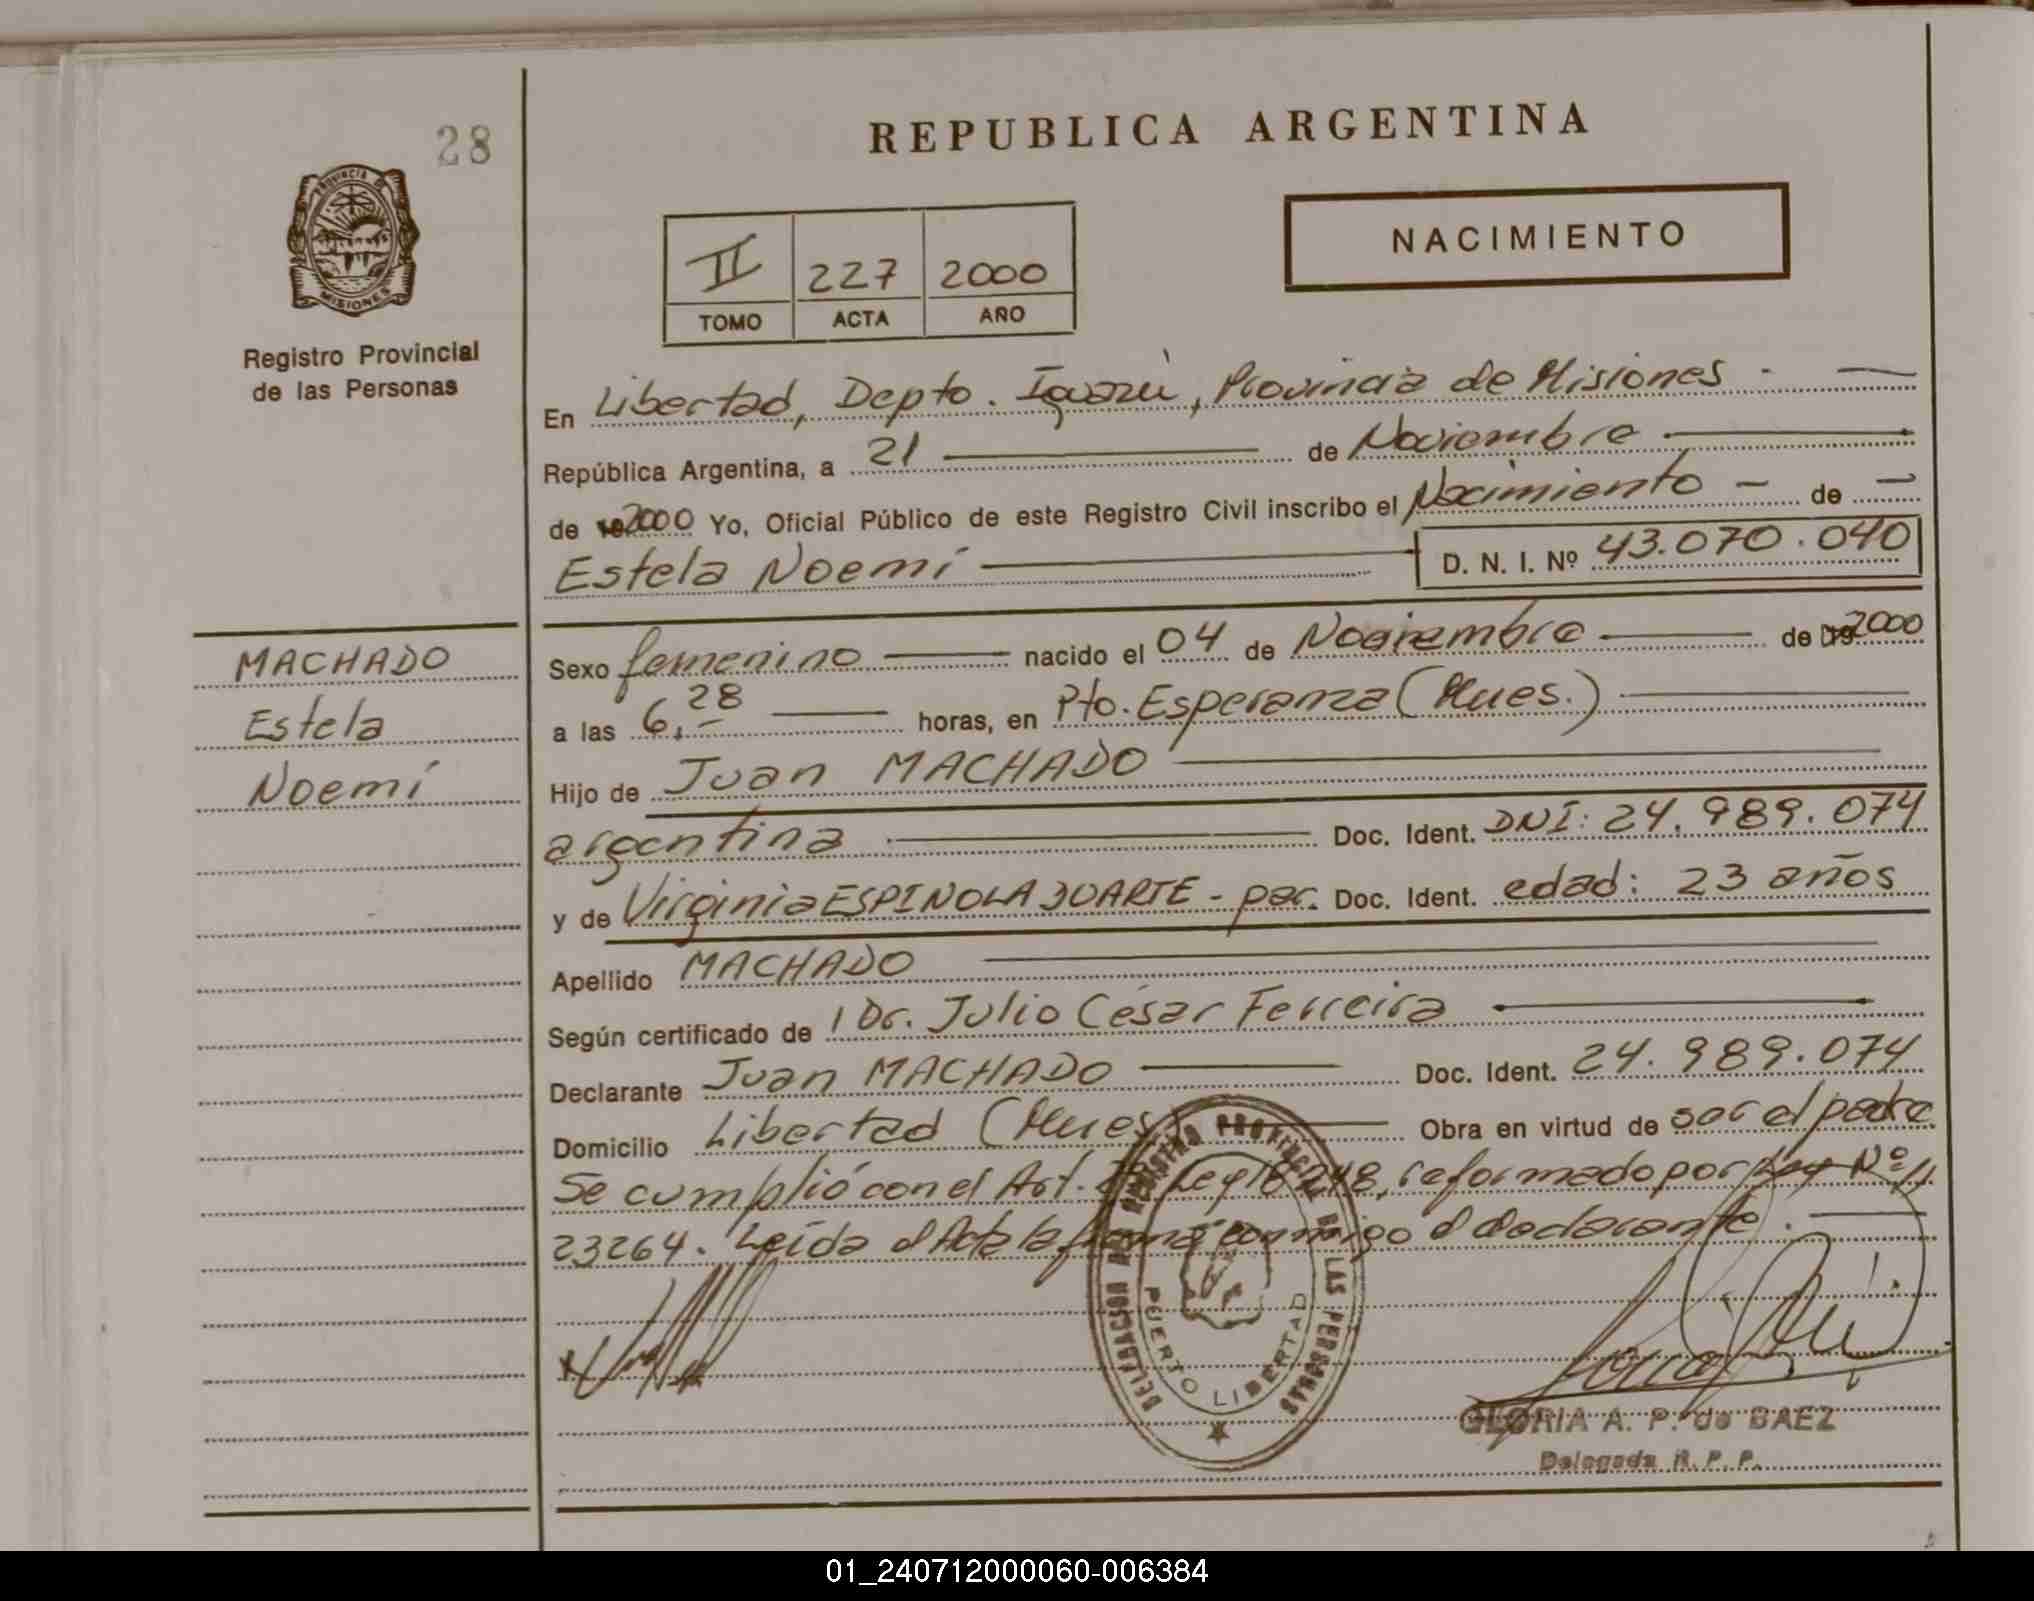 28
REPUBLICA ARGENTINA
PROVINCIA DE
MISIONES
Registro Provincial
de las Personas
NACIMIENTO
II 227 2000
TOMO ACTA AÑO
En Libertad, Depto. Iguazú, Provincia de Misiones. —
República Argentina, a 21 — de Noviembre —
de 2000 Yo, Oficial Público de este Registro Civil inscribo el Nacimiento — de —
Estela Noemí — D. N. I. Nº 43.070.040
MACHADO
Estela
Noemí
Sexo femenino — nacido el 04 de Noviembre — de 2000
a las 6,28 — horas, en Pto. Esperanza (Mnes.) —
Hijo de Juan MACHADO —
argentina — Doc. Ident. DNI: 24.989.074
y de Virginia ESPINOLA DUARTE - par. Doc. Ident. edad: 23 años
Apellido MACHADO —
Según certificado de Dr. Julio César Ferreira —
Declarante Juan MACHADO — Doc. Ident. 24.989.074
Domicilio Libertad (Mnes) — Obra en virtud de ser el padre
Se cumplió con el Art. Ley 18248, reformado por Ley Nº
23264. Leída el Acta la firma conmigo el declarante. —
DELEGACION DEL REGISTRO PROVINCIAL DE LAS PERSONAS
PUERTO LIBERTAD
GLORIA A. P. de BAEZ
Delegada R. P. P.
01_240712000060-006384